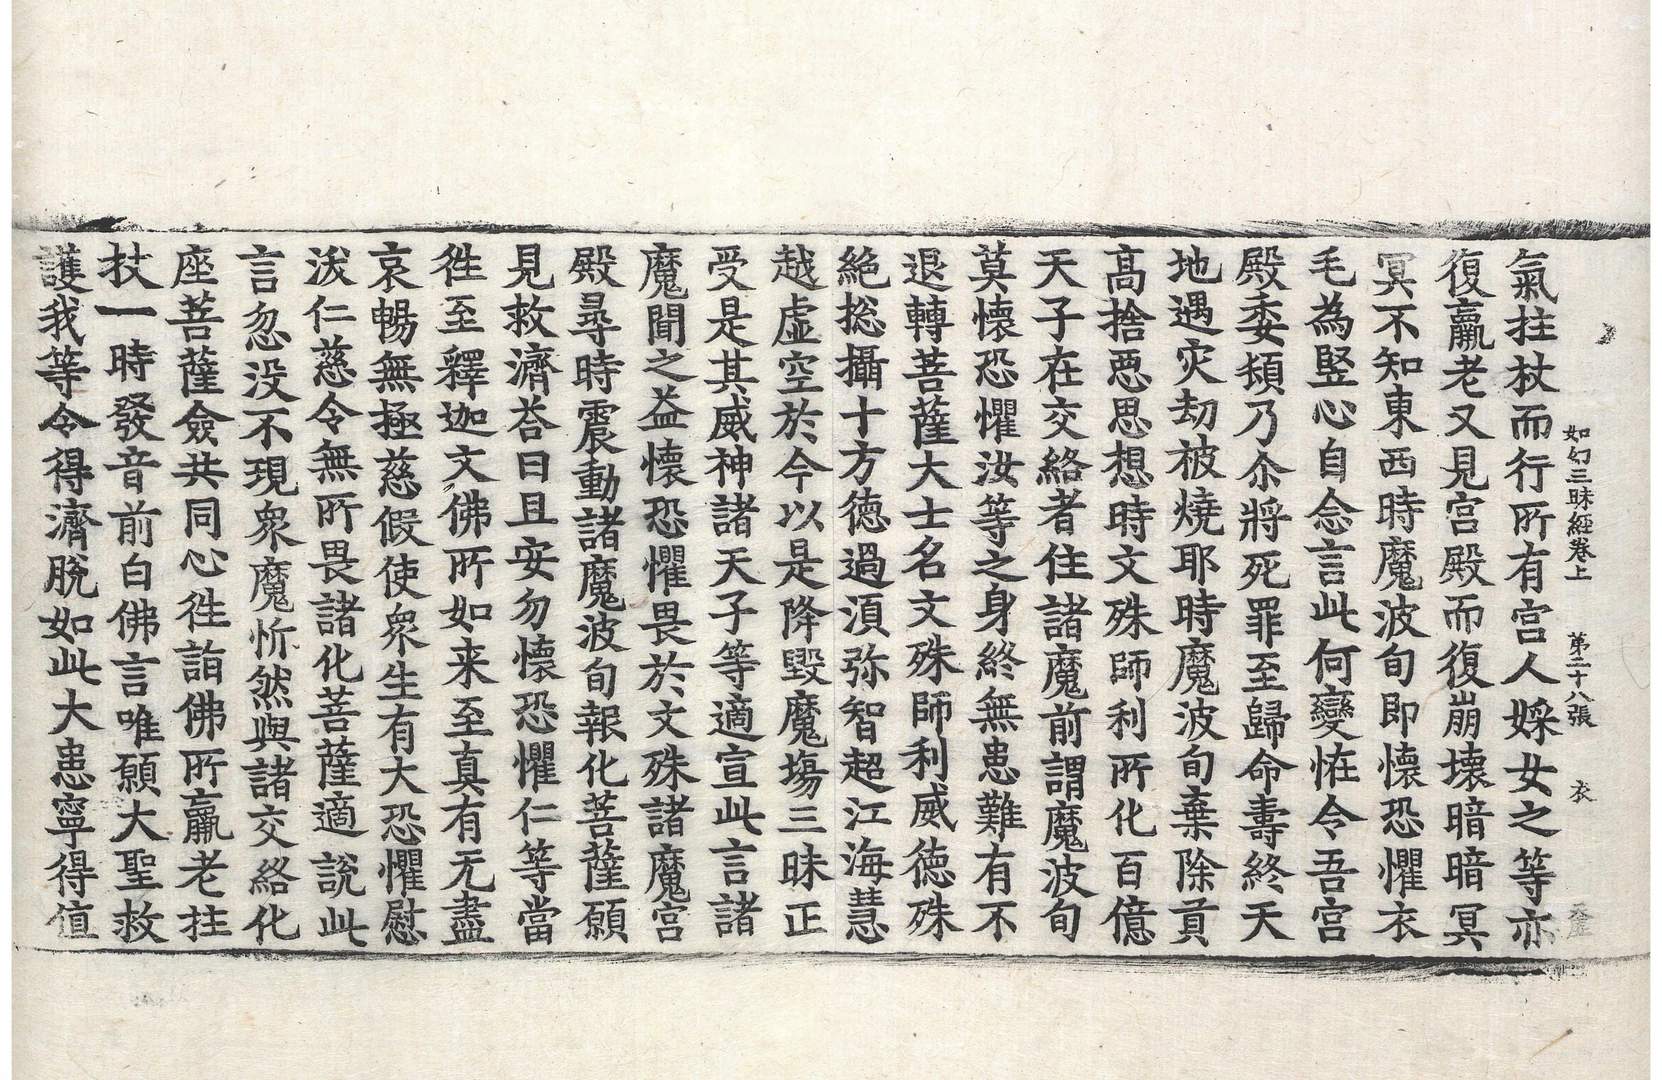 如幻三昧經卷上　第二十八張　衣
氣拄杖而行所有宮人婇女之等亦
復羸老又見宮殿而復崩壞暗暗冥
冥不知東西時魔波旬即懷恐懼衣
毛為竪心自念言此何變恠令吾宮
殿委頺乃尒將死罪至歸命壽終天
地遇灾劫被燒耶時魔波旬棄除貢
髙捨惡思想時文殊師利所化百億
天子在交絡者住諸魔前謂魔波旬
莫懷恐懼汝等之身終無患難有不
退轉菩薩大士名文殊師利威德殊
絶捴攝十方德過湏弥智超江海慧
越虛空於今以是降毀魔塲三昧正
受是其威神諸天子等適宣此言諸
魔聞之益懷恐懼畏於文殊諸魔宮
殿尋時震動諸魔波旬報化菩薩願
見救濟荅曰且安勿懷恐懼仁等當
徃至釋迦文佛所如来至真有无盡
哀暢無極慈假使衆生有大恐懼慰
沷仁慈令無所畏諸化菩薩適說此
言忽没不現衆魔忻然與諸交絡化
座菩薩僉共同心徃詣佛所羸老拄
扙一時發音前白佛言唯願大聖救
護我等令得濟脫如此大患寧得值